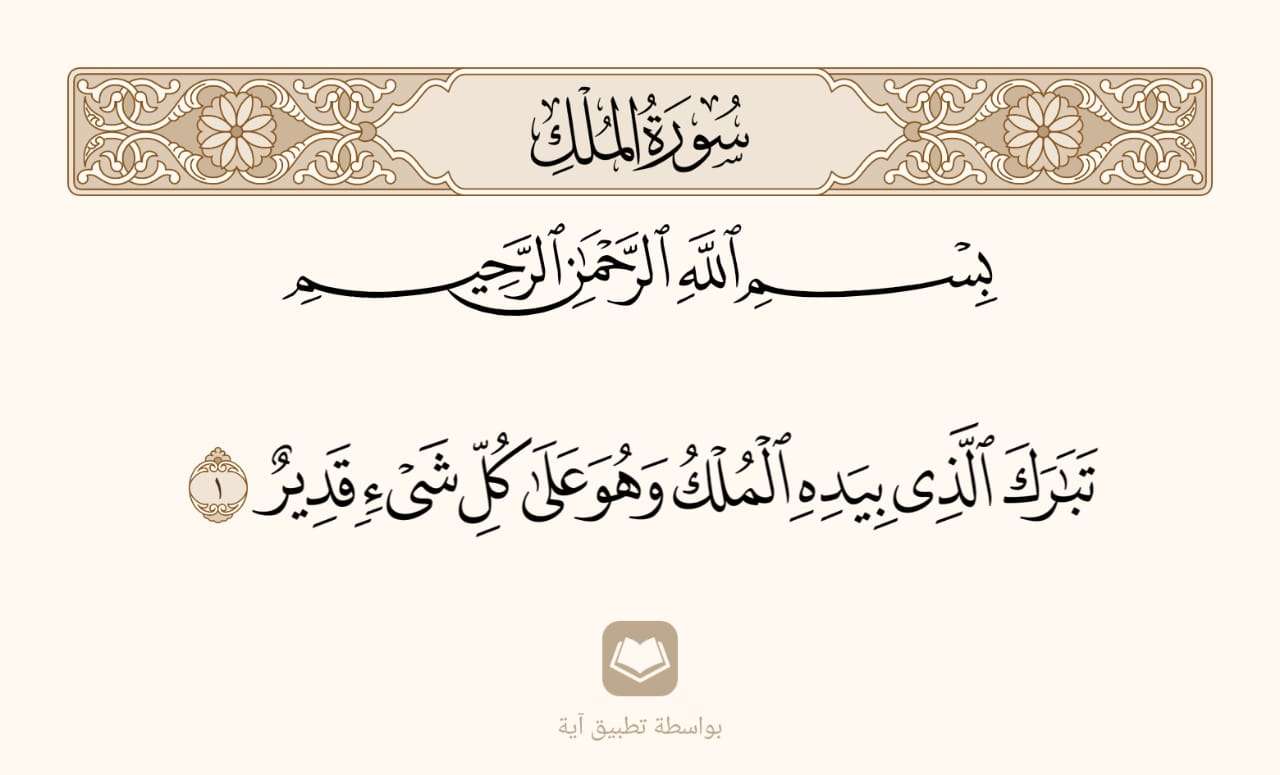 سُورَةُ المُلْكِ
بِسْمِ ٱللَّهِ ٱلرَّحْمَٰنِ ٱلرَّحِيمِ
تَبَٰرَكَ ٱلَّذِى بِيَدِهِ ٱلْمُلْكُ وَهُوَ عَلَىٰ كُلِّ شَىْءٍ قَدِيرٌ ١
بواسطة تطبيق آية